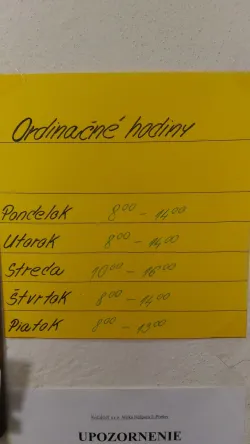 Ordinačné hodiny
Pondelok 8⁰⁰ - 14⁰⁰
Utorok 8⁰⁰ - 14⁰⁰
Streda 10⁰⁰ - 16⁰⁰
Štvrtok 8⁰⁰ - 14⁰⁰
Piatok 8⁰⁰ - 13⁰⁰
UPOZORNENIE